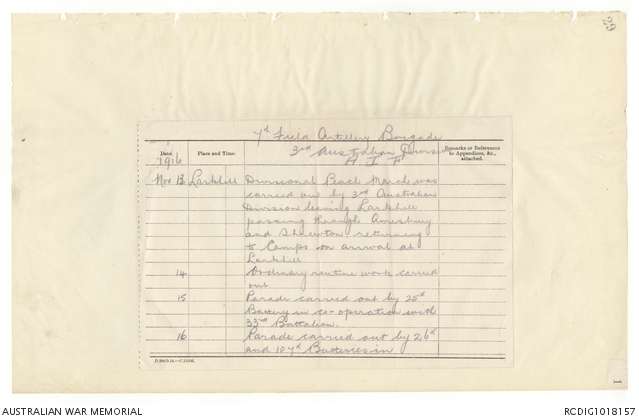 7th Field Artillery Brigade
3rd Australian Division
A.I.F.
Date
1916
Place and Time.
Remarks or References to Appendices, &c., attached.
Nov 13 Larkhill Divisional March was
carried out by 3rd Australian
Division leaving Larkhill
passing through Amesbury
and Shrewton, returning
to Camps on arrival at
Larkhill
14 Ordinary routine work carried
out
15 Parade carried out by 25th
Battery in co-operation with
33rd Battalion.
16 Parade carried out by 26th
and 107th Batteries in
AUSTRALIAN WAR MEMORIAL
RCDIG1018157